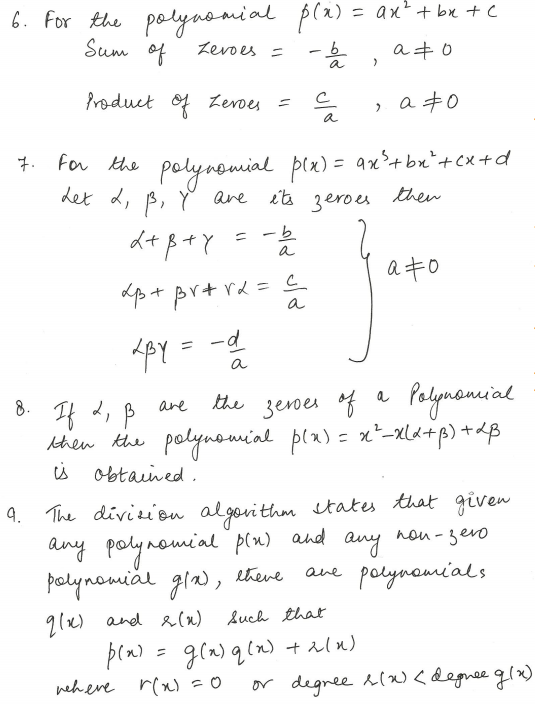 6. For the polynomial p(x) = ax² + bx + c
Sum of zeroes = -b/a , a ≠ 0
Product of zeroes = c/a , a ≠ 0
7. For the polynomial p(x) = ax³+bx²+cx+d
Let α, β, γ are its zeroes then
α+β+γ = -b/a
αβ + βγ + γα = c/a } a≠0
αβγ = -d/a
8. If α, β are the zeroes of a Polynomial
then the polynomial p(x) = x²-x(α+β)+αβ
is obtained.
9. The division algorithm states that given
any polynomial p(x) and any non-zero
polynomial g(x), there are polynomials
q(x) and r(x) such that
p(x) = g(x) q(x) + r(x)
where r(x) = 0 or degree r(x) < degree g(x)